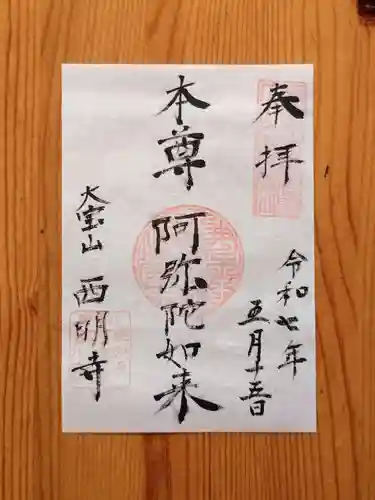 奉拝
令和七年
五月十五日
本尊
阿弥陀如来
大宝山
西明寺